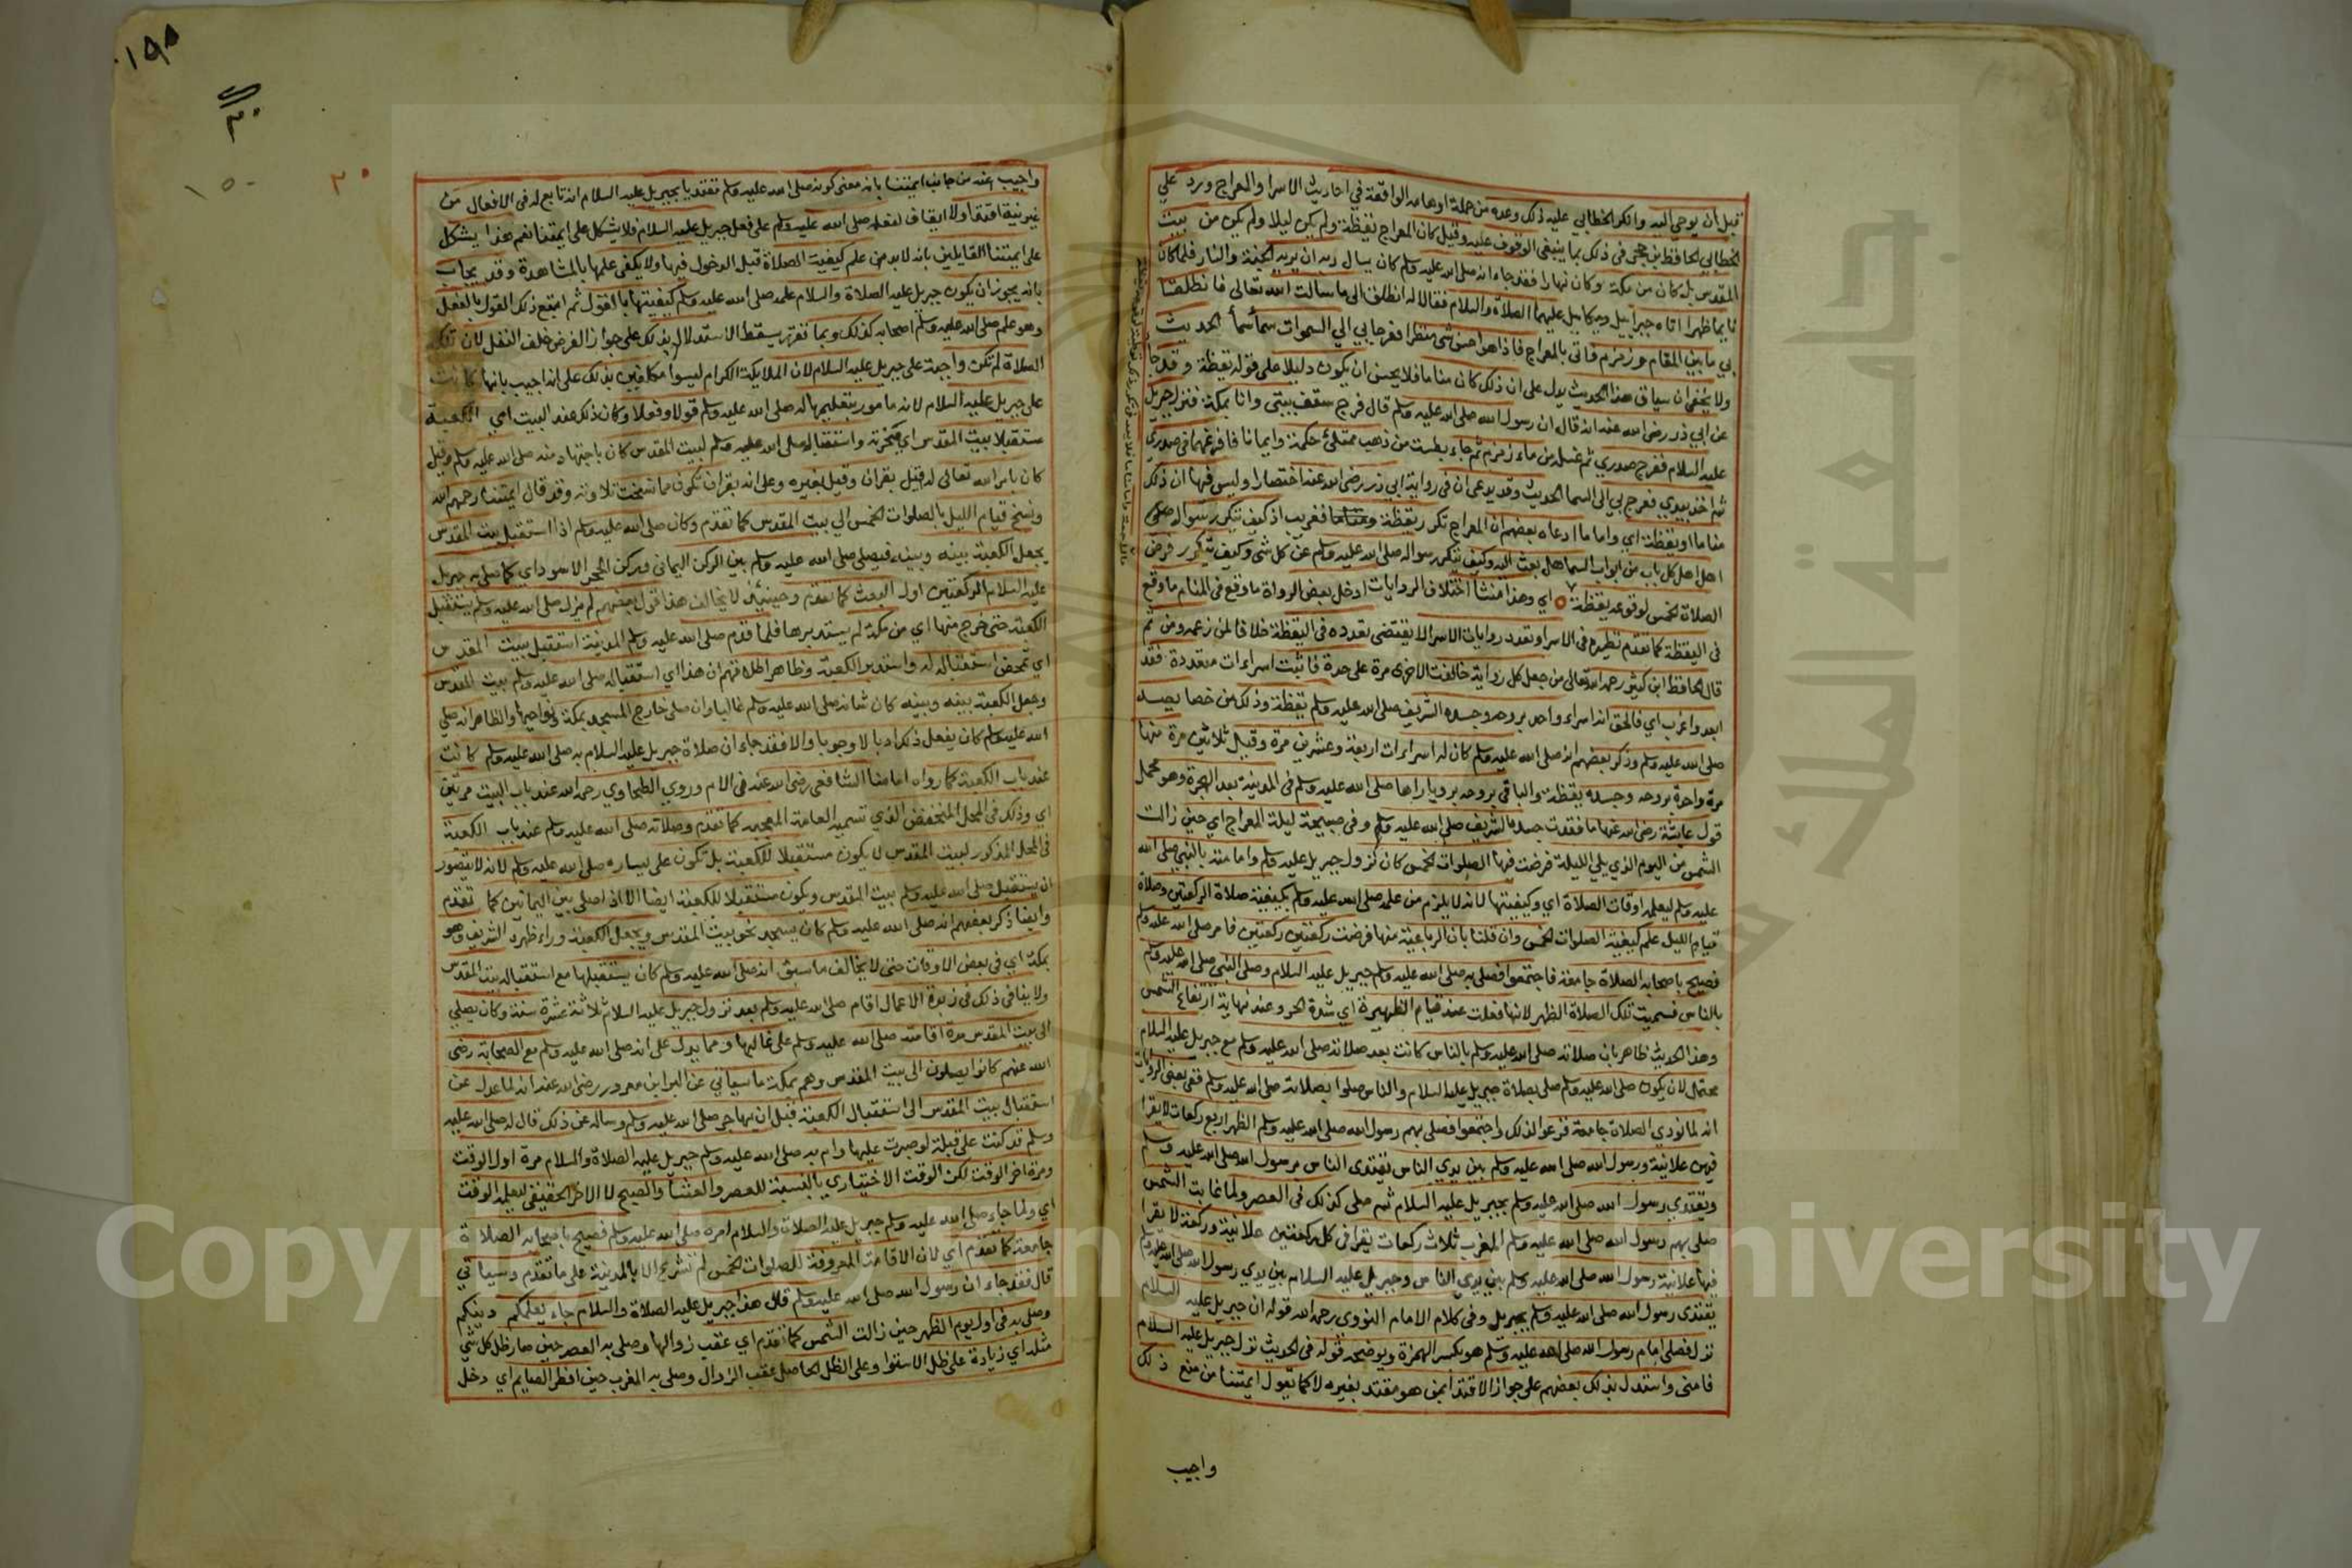 قبل ان يوحي اليه وانكر الخطابي عليه ذلك وعده من جملة اوهامه الواقعة في احاديث الاسرا والمعراج ورد علي
الخطابي الحافظ بن حجر في ذلك بما ينبغي الوقوف عليه وقيل كان المعراج يقظة ولم يكن ليلا ولم يكن من بيت
المقدس بل كان من مكة وكان نهارا فقد جاء انه صلى الله عليه وسلم كان يسال ربه ان يريه الجنة والنار فلما كان
نايما ظهرا اتاه جبراييل وميكاييل عليهما الصلاة والسلام فقالا له انطلق الى ما سالت الله تعالى فانطلقا
بي ما بين المقام وزمزم فاتى بالمعراج فاذا هو احسن شي منظرا فعرجا بي الي السموات سماً سماً الحديث
ولا يخفى ان سياق هذا الحديث يدل على ان ذلك كان مناما فلا يحسن ان يكون دليلا على قوله يقظة وقد جا
عن ابي ذر رضى الله عنه انه قال ان رسول الله صلى الله عليه وسلم قال فرج سقف بيتي وانا بمكة فنزل جبريل
عليه السلام ففرج صدري ثم غسله من ماء زمزم ثم جاء بطست من ذهب ممتلئ حكمة وايمانا فافرغهما في صدري
ثم اخذ بيدي فعرج بي الى السما الحديث وقد يدعى ان في رواية ابي ذر رضى الله عنه اختصارا وليس فيها ان ذلك
مناما او يقظة اي واما ما ادعاه بعضهم ان المعراج تكرر يقظة فغريب اذ كيف تيكرر سواله صلى
اهل كل باب من ابواب السما هل بعث اليه وكيف يتكرر سواله صلى الله عليه وسلم عن كل شى وكيف يتكرر فرض
الصلاة الخمس لوقوعه يقظة اي وهذا منشأ اختلاف الروايات ادخل بعض الرواة ما وقع في المنام ما وقع
فى اليقظة كما تقدم نظيره فى الاسرا وتعدد روايات الاسرا لا يقتضى تعدده فى اليقظة خلافا لمن زعمه ومن ثم
قال الحافظ ابن كثير رحمه الله تعالى من جعل كل رواية خالفت الاخرى مرة على حدة فاثبت اسراءات متعددة فقد
ابعد واغرب اي فالحق انه اسراء واحد بروحه وجسده الشريف صلى الله عليه وسلم يقظة وذلك من خصايصه
صلى الله عليه وسلم وذكر بعضهم انه صلى الله عليه وسلم كان له اسراءات اربعة وعشرين مرة وقيل ثلاثين مرة منها
مرة واحدة بروحه وجسده يقظة والباقي بروحه برويا راها صلى الله عليه وسلم فى المدينة بعد الهجرة وهو محمل
قول عايشة رضى الله عنها ما فقدت جسده الشريف صلى الله عليه وسلم وفى صبيحة ليلة المعراج اي حين زالت
الشمس من اليوم الذي يلي الليلة فرضت فيها الصلوات الخمس كان نزول جبريل عليه وسلم وامامته بالنبي صلى الله
عليه وسلم ليعلمه اوقات الصلاة اي وكيفيتها لانه لا يلزم من علمه صلى الله عليه وسلم بكيفية صلاة الركعتين وصلاة
قيام الليل علم كيفية الصلوات الخمس وان قلنا بان الرباعية منها فرضت ركعتين ركعتين فامر صلى الله عليه وسلم
فصيح باصحابه الصلاة جامعة فاجتمعوا فصلى به صلى الله عليه وسلم جبريل عليه السلام وصلى النبي صلى الله عليه وسلم
بالناس فسميت تلك الصلاة الظهر لانها فعلت عند قيام الظهيرة اي شدة الحر وعند نهاية ارتفاع الشمس
وهذا الحديث ظاهر بان صلاته صلى الله عليه وسلم بالناس كانت بعد صلاته صلى الله عليه وسلم مع جبريل عليه السلام
محتمل لان يكون صلى الله عليه وسلم صلى بصلاة جبريل عليه السلام والناس صلوا بصلاته صلى الله عليه وسلم ففى بعض الروايات
انه لما نودي الصلاة جامعة فزعوا لذلك واجتمعوا فصلى بهم رسول الله صلى الله عليه وسلم الظهر اربع ركعات لا يقرا
فيهن علانية ورسول الله صلى الله عليه وسلم بين يدي الناس يقتدى الناس برسول الله صلى الله عليه وسلم
ويقتدي رسول الله صلى الله عليه وسلم بجبريل عليه السلام ثم صلى كذلك فى العصر ولما غابت الشمس
صلى بهم رسول الله صلى الله عليه وسلم المغرب ثلاث ركعات يقرا فى كل ركعتين علانية وركعة لا يقرا
فيها علانية رسول الله صلى الله عليه وسلم بين يدي الناس وجبريل عليه السلام بين يدي رسول الله صلى الله عليه وسلم
يقتدى رسول الله صلى الله عليه وسلم بجبريل وفى كلام الامام النووي رحمه الله قوله ان جبريل عليه السلام
نزل فصلى امام رسول الله صلى الله عليه وسلم هو بكسر الهمزة ويوضحه قوله فى الحديث نزل جبريل عليه السلام
فامنى واستدل بذلك بعضهم على جواز الاقتدا بمن هو مقتد بغيره لا كما يقول ايمتنا من منع ذلك
واجيب
١٥٠
٣٠
واجيب عنه من جانب ايمتنا بان معنى كونه صلى الله عليه وسلم مقتديا بجبريل عليه السلام انه تابع له فى الافعال من
غير نية اقتدا ولا ايقاف لفعله صلى الله عليه وسلم على فعل جبريل عليه السلام فلا يشكل على ايمتنا نعم هذا يشكل
على ايمتنا القايلين بانه لا بد من علم كيفية الصلاة قبل الدخول فيها ولا يكفى علمها بالمشاهدة وقد يجاب
بانه يجوز ان يكون جبريل عليه الصلاة والسلام علمه صلى الله عليه وسلم كيفيتها بالقول ثم اتبع ذلك القول بالفعل
وهو علم صلى الله عليه وسلم اصحابه كذلك وبما تقرر يسقط الاستدلال بذلك على جواز الفرض خلف النفل لان تلك
الصلاة لم تكن واجبة على جبريل عليه السلام لان الملايكة الكرام ليسوا مكلفين بذلك على انه اجيب بانها كانت
على جبريل عليه السلام لانه مامور بتعليمها له صلى الله عليه وسلم قولا وفعلا وكان ذلك عند البيت اي الكعبة
مستقبلا بيت المقدس اي صخرته واستقباله صلى الله عليه وسلم لبيت المقدس كان باجتهاد منه صلى الله عليه وسلم وقيل
كان بامر الله تعالى له قيل بقران وقيل بغيره وعلى انه بقران تكون مما نسخت تلاوته وقد قال ايمتنا رحمهم الله
ونسخ قيام الليل بالصلوات الخمس الي بيت المقدس كما تقدم وكان صلى الله عليه وسلم اذا استقبل بيت المقدس
يجعل الكعبة بينه وبينه فيصلى صلى الله عليه وسلم بين الركن اليمانى وركن الحجر الاسود اي كما صلى به جبريل
عليه السلام الركعتين اول البعث كما تقدم وحينئذ لا يخالف هذا قول بعضهم لم يزل صلى الله عليه وسلم يستقبل
الكعبة حتى خرج منها اي من مكة لم يستدبرها فلما قدم صلى الله عليه وسلم المدينة استقبل بيت المقدس
اي تمحض استقباله له واستدبر الكعبة وظاهر اطلاقهم ان هذا اي استقباله صلى الله عليه وسلم بيت المقدس
وجعل الكعبة بينه وبينه كان شانه صلى الله عليه وسلم غالبا وان صلى خارج المسجد بمكة ونواحيها والظاهر انه صلى
الله عليه وسلم كان يفعل ذلك ادبا لا وجوبا والا فقد جاء ان صلاة جبريل عليه السلام به صلى الله عليه وسلم كانت
عند باب الكعبة كما رواه امامنا الشافعى رضى الله عنه فى الام وروي الطحاوي رحمه الله عند باب البيت مرتين
اي وذلك فى المحل المنخفض الذي تسميه العامة المعجنه كما تقدم وصلاته صلى الله عليه وسلم عند باب الكعبة
فى المحل المذكور لبيت المقدس لا يكون مستقبلا للكعبة بل تكون على يساره صلى الله عليه وسلم لانه لا يتصور
ان يستقبل صلى الله عليه وسلم بيت المقدس ويكون مستقبلا للكعبة ايضا الا اذا صلى بين اليمانيين كما تقدم
وايضا ذكر بعضهم انه صلى الله عليه وسلم كان يسجد نحو بيت المقدس ويجعل الكعبة وراء ظهره الشريف وهو
بمكة اي فى بعض الاوقات حتى لا يخالف ما سبق انه صلى الله عليه وسلم كان يستقبلها مع استقباله بيت المقدس
ولا ينافى ذلك فى زبدة الاعمال اقام صلى الله عليه وسلم بعد نزول جبريل عليه السلام ثلاثة عشرة سنة وكان يصلي
الى بيت المقدس مدة اقامته صلى الله عليه وسلم على غالبها ومما يدل على انه صلى الله عليه وسلم مع الصحابة رضى
الله عنهم كانوا يصلون الى بيت المقدس وهم بمكة ما سياتي عن البرا ابن معرور رضى الله عنه انه لما عدل عن
استقبال بيت المقدس الى استقبال الكعبة قبل ان يهاجر صلى الله عليه وسلم وساله عن ذلك قال له صلى الله عليه
وسلم قد كنت على قبلة لو صبرت عليها وام به صلى الله عليه وسلم جبريل عليه الصلاة والسلام مرة اول الوقت
ومرة اخر الوقت لكن الوقت الاختياري بالنسبة للعصر والعشا والصبح لا الاخر الحقيقى ليعلمه الوقت
اي ولما جاء صلى الله عليه وسلم جبريل عليه الصلاة والسلام امره صلى الله عليه وسلم فصيح باصحابه الصلاة
جامعة كما تقدم اي لان الاقامة المعروفة للصلوات الخمس لم تشرع الا بالمدينة على ما تقدم وسياتي
قال فقد جاء ان رسول الله صلى الله عليه وسلم قال هذا جبريل عليه الصلاة والسلام جاء يعلمكم دينكم
وصلى به فى اول يوم الظهر حين زالت الشمس كما تقدم اي عقب زوالها وصلى به العصر حين صار ظل كل شي
مثله اي زيادة على ظل الاستوا وعلى الظل الحاصل عقب الزوال وصلى به المغرب حين افطر الصايم اي دخل
Copyright © King Saud University